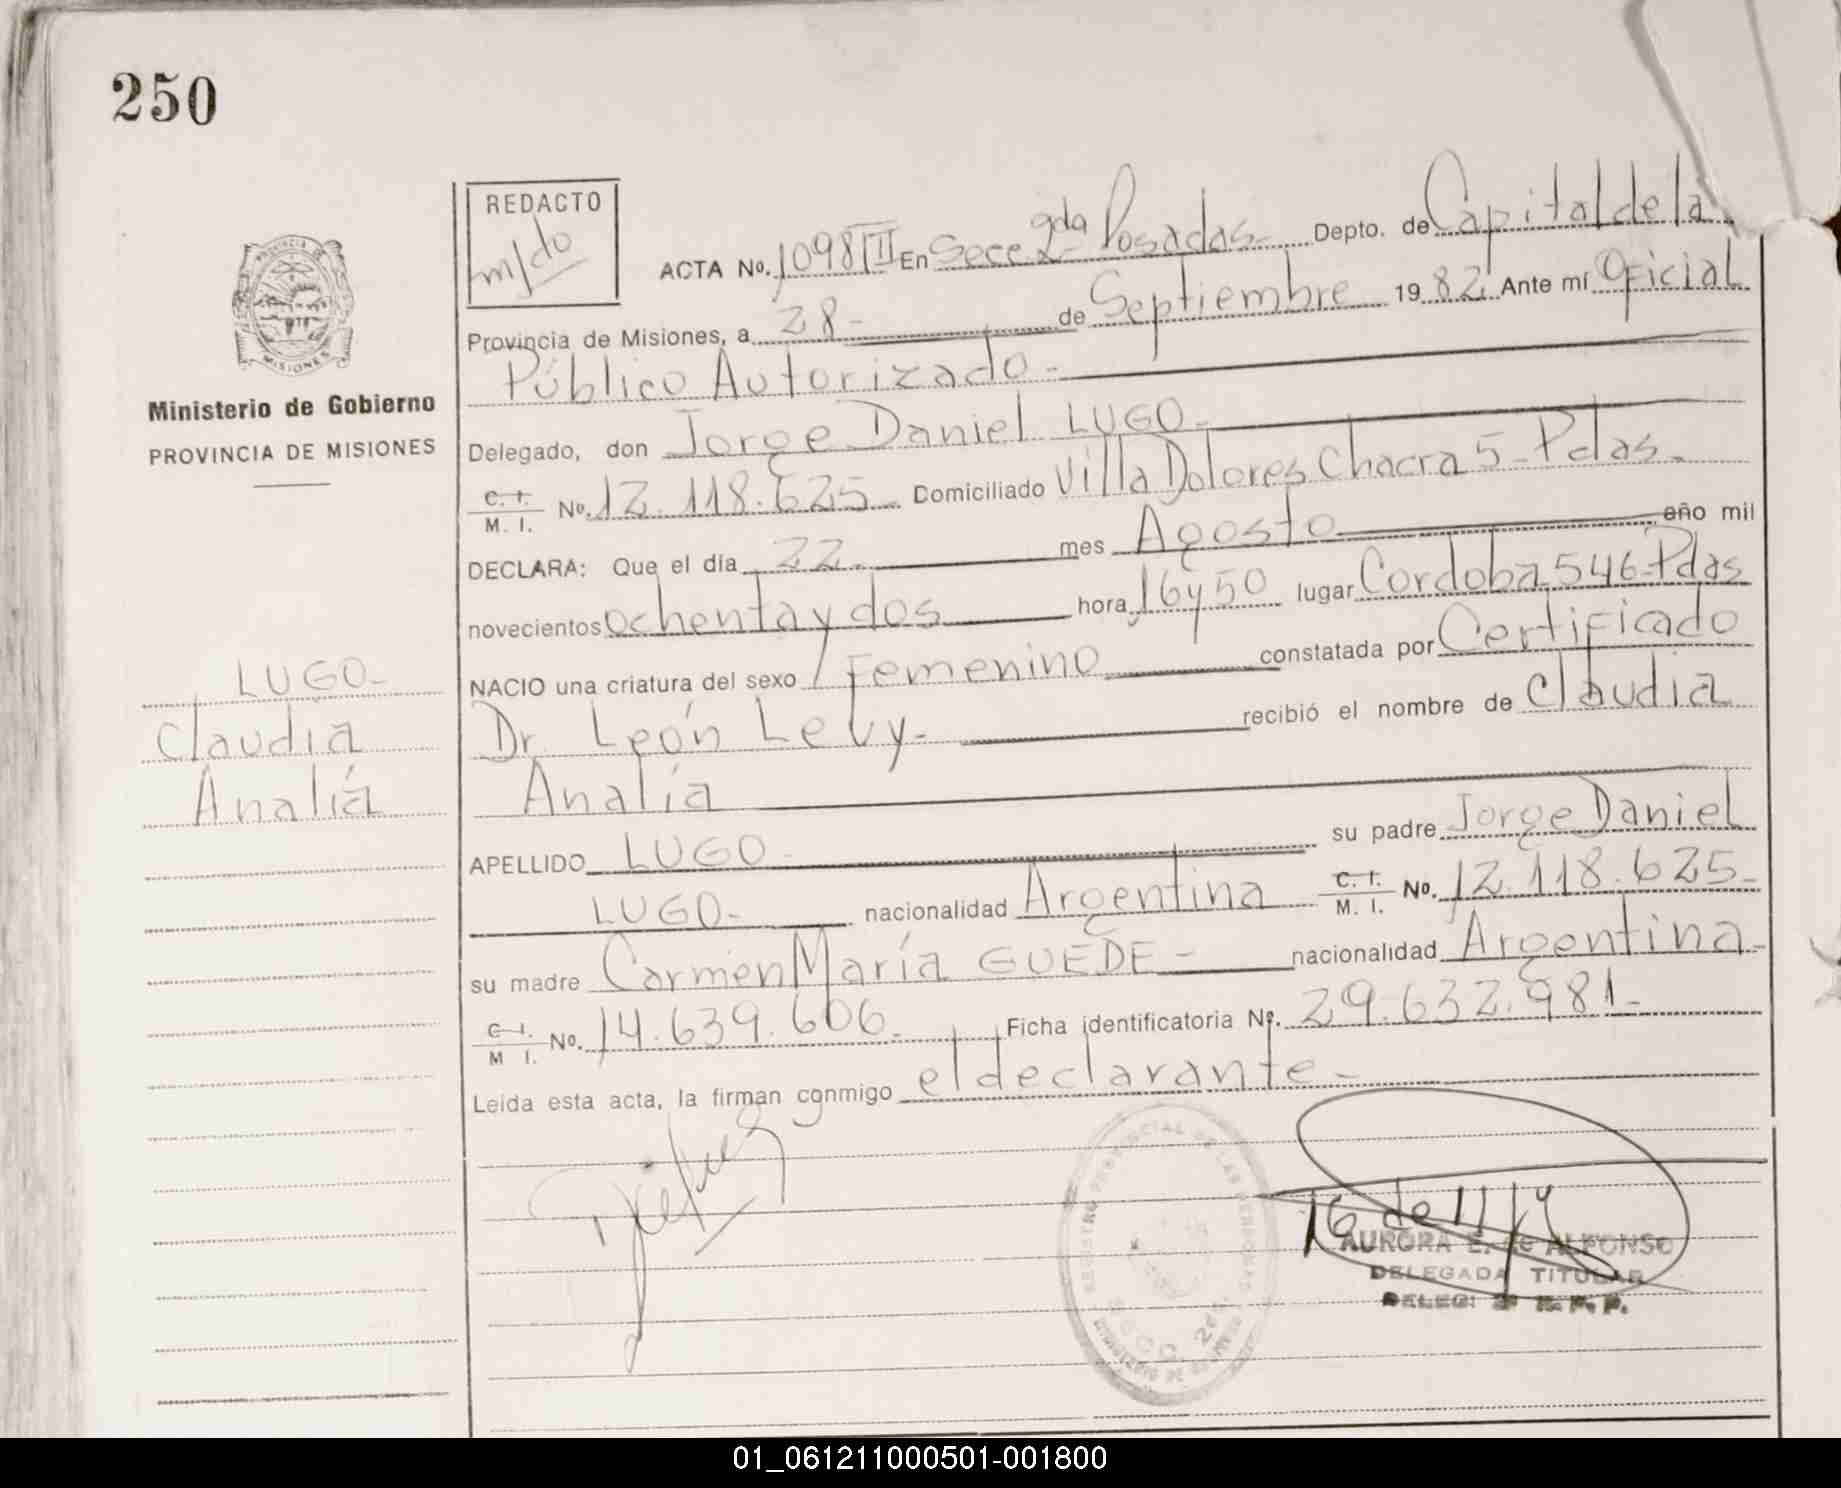 250
REDACTO
m/do
ACTA No. 1098 III En Secc 2da Posadas - Depto. de Capital de la
Provincia de Misiones, a 28 - de Septiembre 1982 Ante mí Oficial
Público Autorizado -
PROVINCIA
MISIONES
Ministerio de Gobierno
PROVINCIA DE MISIONES
Delegado, don Jorge Daniel LUGO -
C. I.
M. I. No. 12.118.625 - Domiciliado Villa Dolores Chacra 5 - Pdas -
DECLARA: Que el día 22 - mes Agosto año mil
novecientos ochenta y dos hora 16 y 50 lugar Cordoba 546 - Pdas
NACIO una criatura del sexo Femenino constatada por Certificado
Dr. León Levy - recibió el nombre de Claudia
Analía
LUGO -
Claudia
Analía
APELLIDO LUGO - su padre Jorge Daniel
LUGO - nacionalidad Argentina C. I. M. I. No. 12.118.625 -
su madre Carmen María GUEDE - nacionalidad Argentina -
C. I.
M I. No. 14.639.606 - Ficha identificatoria Nº. 29.632.981 -
Leída esta acta, la firman conmigo el declarante -
REGISTRO PROVINCIAL DE LAS PERSONAS
SECC. 2da.
MINISTERIO DE GOBIERNO
AURORA E. de ALFONSO
DELEGADA TITULAR
01_061211000501-001800